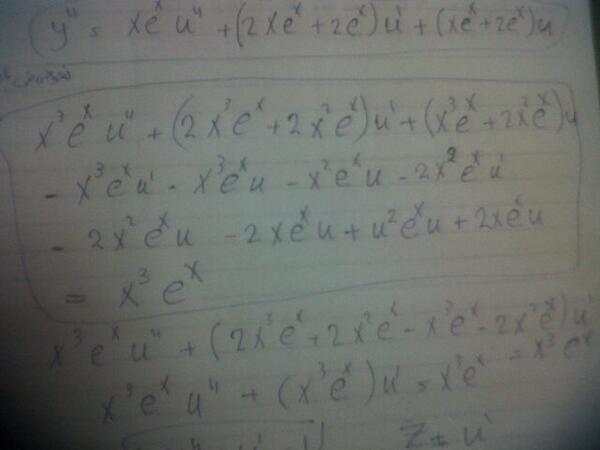 y'' = xeˣ u'' + (2xeˣ + 2eˣ) u' + (xeˣ + 2eˣ) u
x³eˣ u'' + (2x³eˣ + 2x²eˣ) u' + (x³eˣ + 2x²eˣ) u
- x³eˣ u' - x³eˣ u - x²eˣ u - 2x²eˣ u'
- 2x²eˣ u - 2xeˣ u + u²eˣ u + 2xeˣ u
= x³ eˣ
x³eˣ u'' + (2x³eˣ + 2x²eˣ - x³eˣ - 2x²eˣ) u' = x³eˣ
x³eˣ u'' + (x³eˣ) u' = x³eˣ
Z = u'